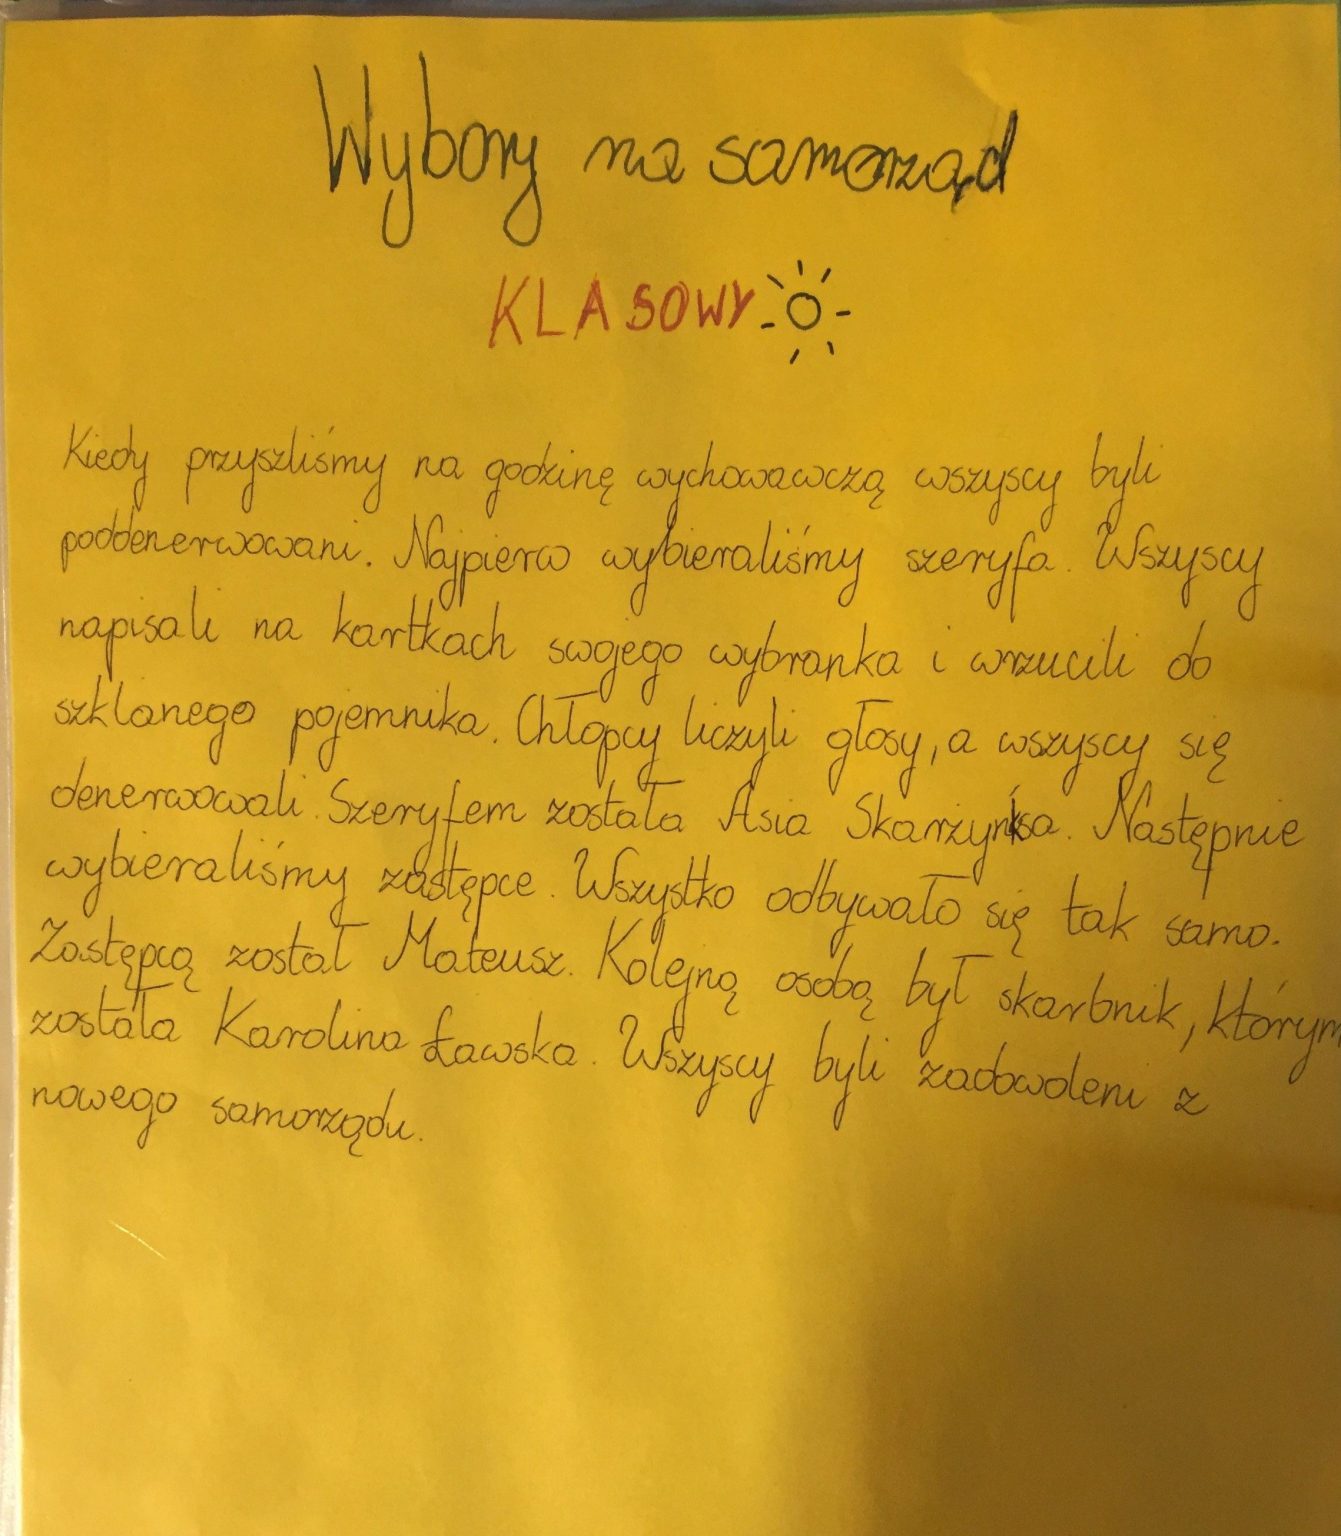 Wybory na samorząd
KLASOWY
Kiedy przyszliśmy na godzinę wychowawczą wszyscy byli
poddenerwowani. Najpierw wybieraliśmy szeryfa. Wszyscy
napisali na kartkach swojego wybranka i wrzucili do
szklanego pojemnika. Chłopcy liczyli głosy, a wszyscy się
denerwowali. Szeryfem została Asia. Następnie
wybieraliśmy zastępce. Wszystko odbywało się tak samo.
Zastępcą został Mateusz. Kolejną osobą był skarbnik, którym
została Karolina Ławska. Wszyscy byli zadowoleni z
nowego samorządu.